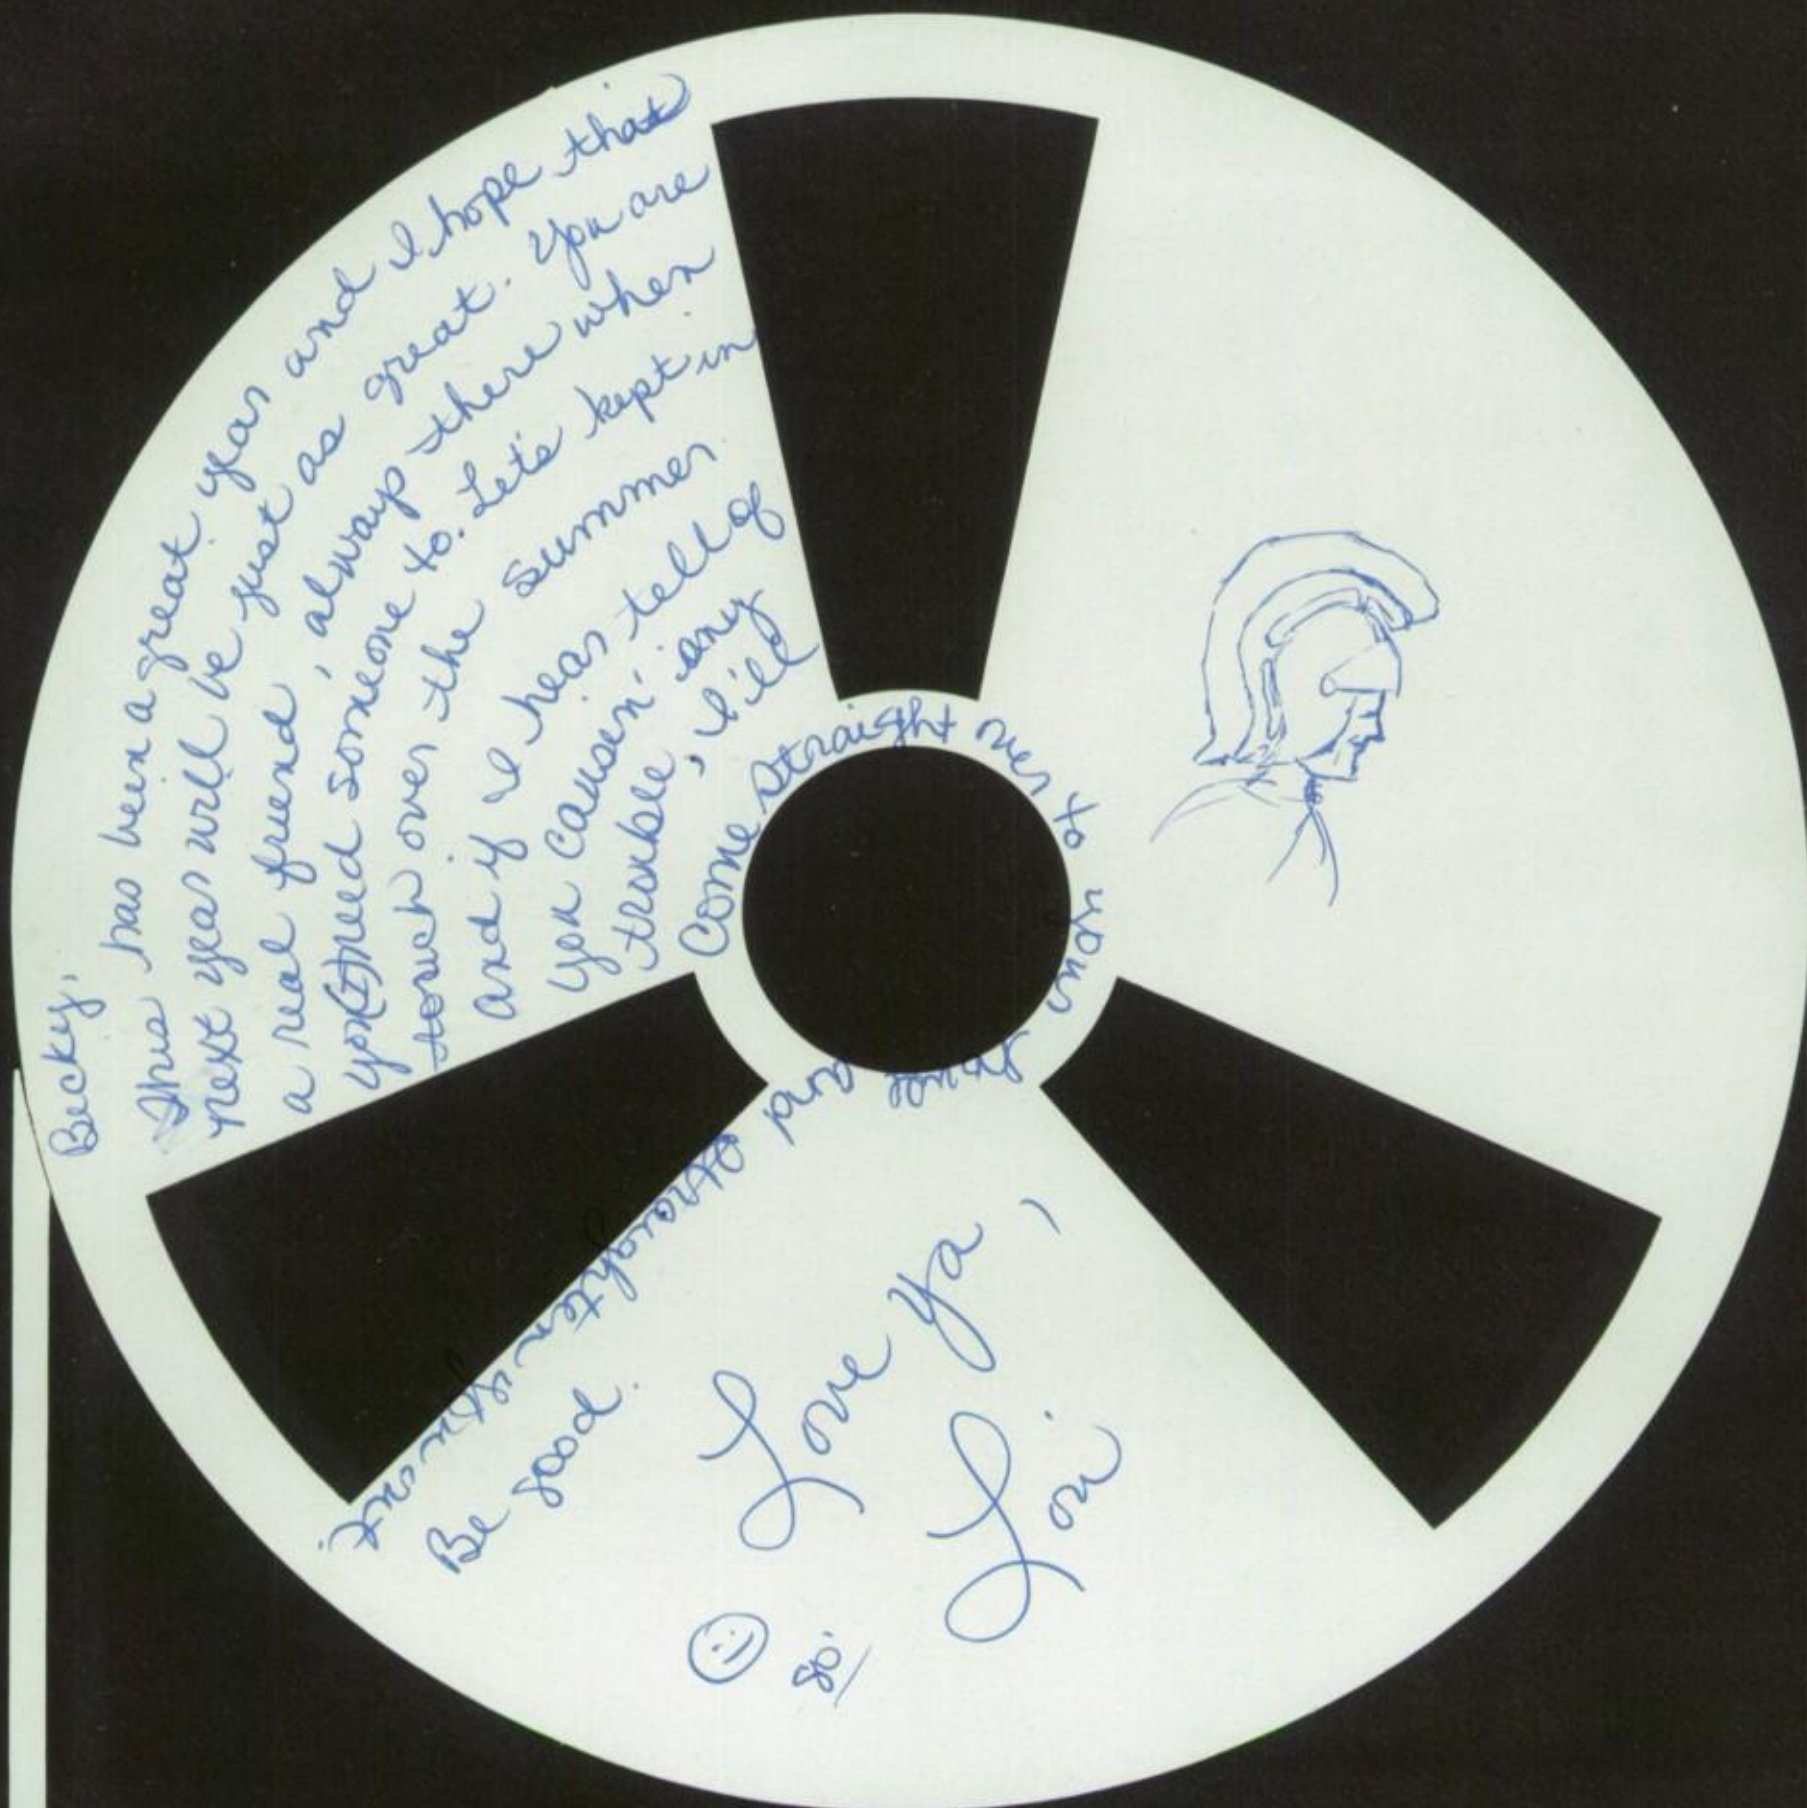 Becky,
This has been a great year and I hope that
next year will be just as great. You are
a real friend, always there when
you(I) need someone to. Let's kept in
touch over the summer.
and if I hear tell of
you causen' any
trouble, I'll
Come straight over to your house and straighten you out.
Be good.
Love ya,
Lori
80'